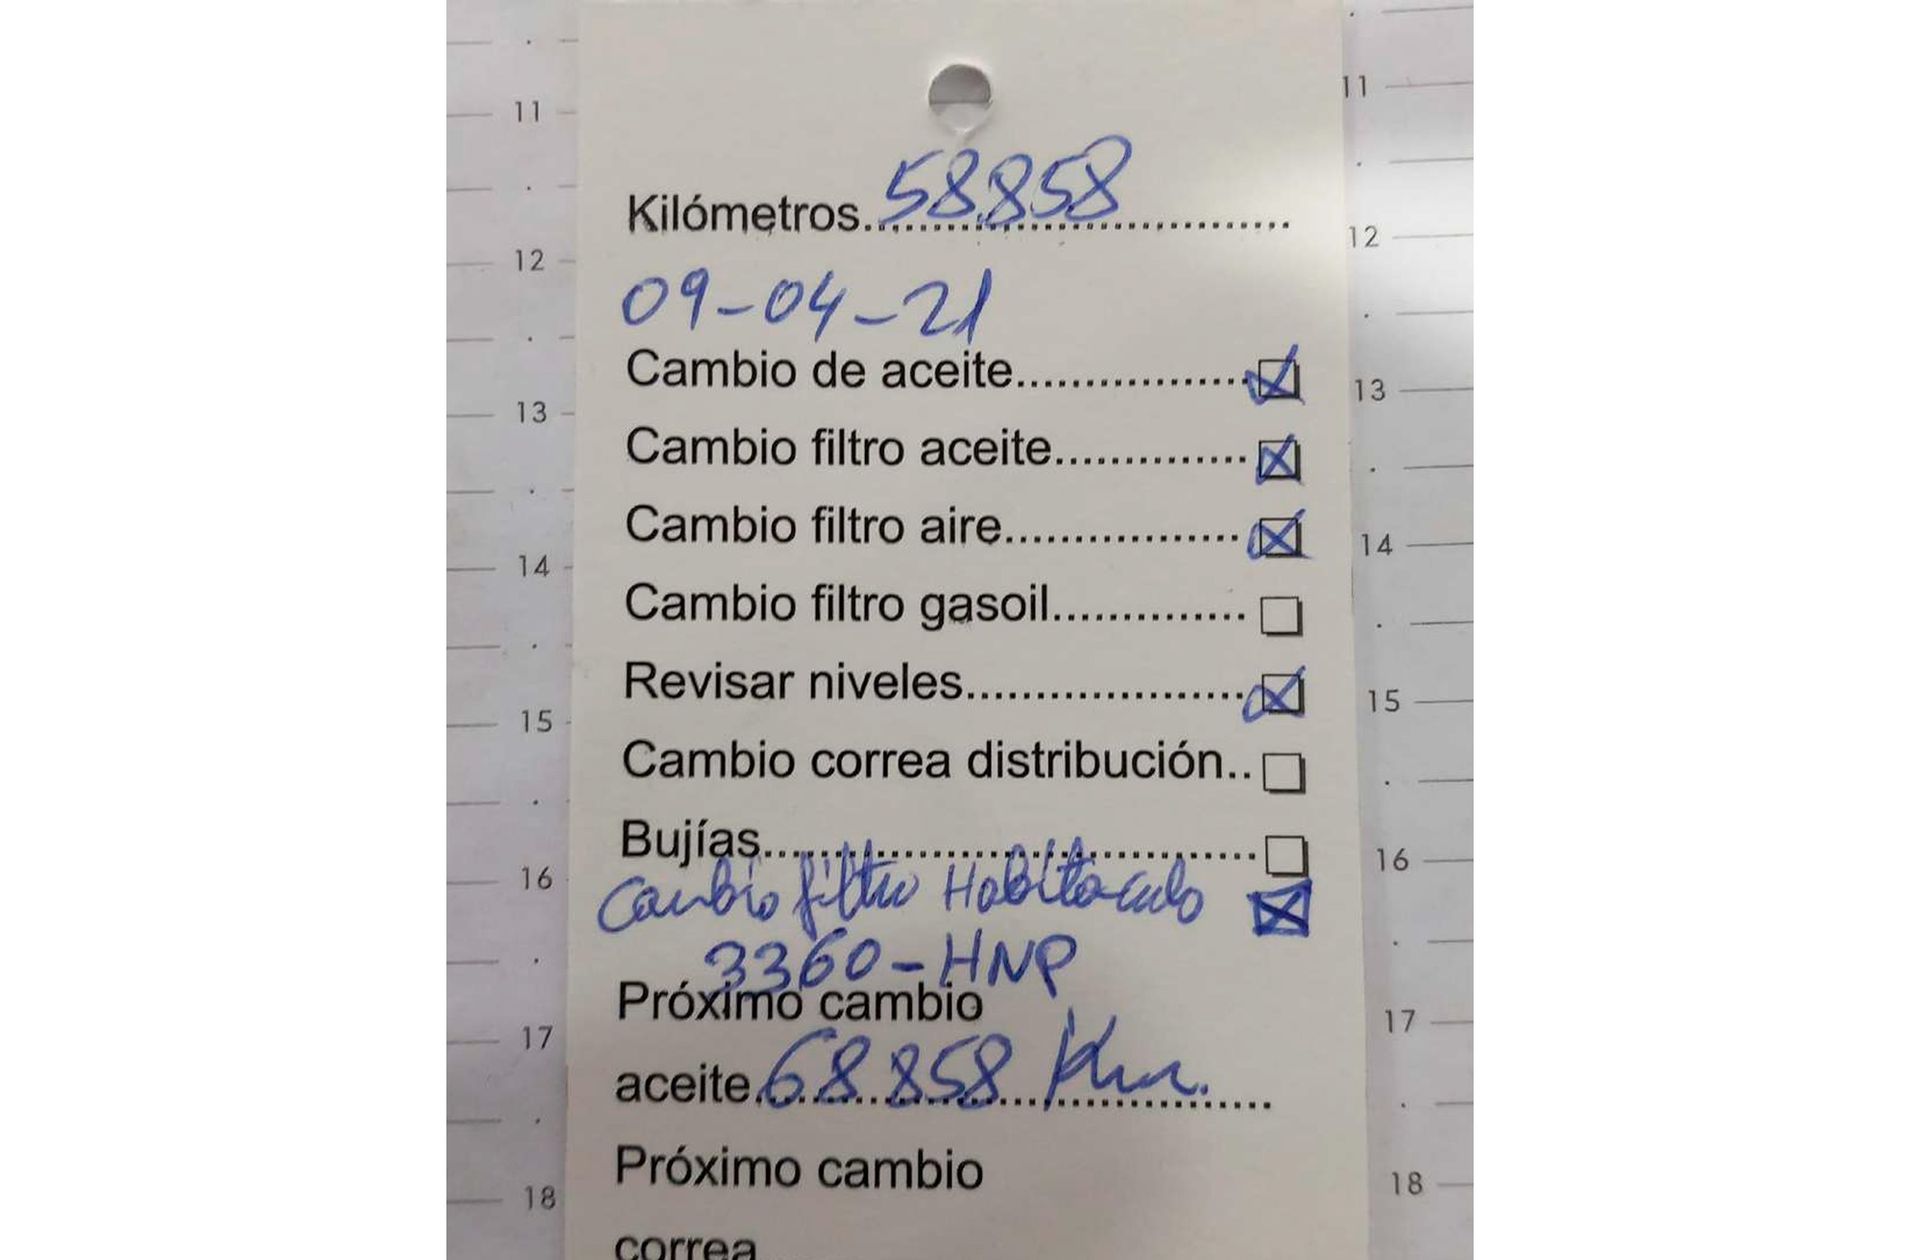 11
12
13
14
15
16
17
18
Kilómetros 58.858
09-04-21
Cambio de aceite
Cambio filtro aceite
Cambio filtro aire
Cambio filtro gasoil
Revisar niveles
Cambio correa distribución
Bujías
Cambio filtro Habitaculo
3360-HNP
Próximo cambio
aceite 68.858 Km.
Próximo cambio
correa
11
12
13
14
15
16
17
18